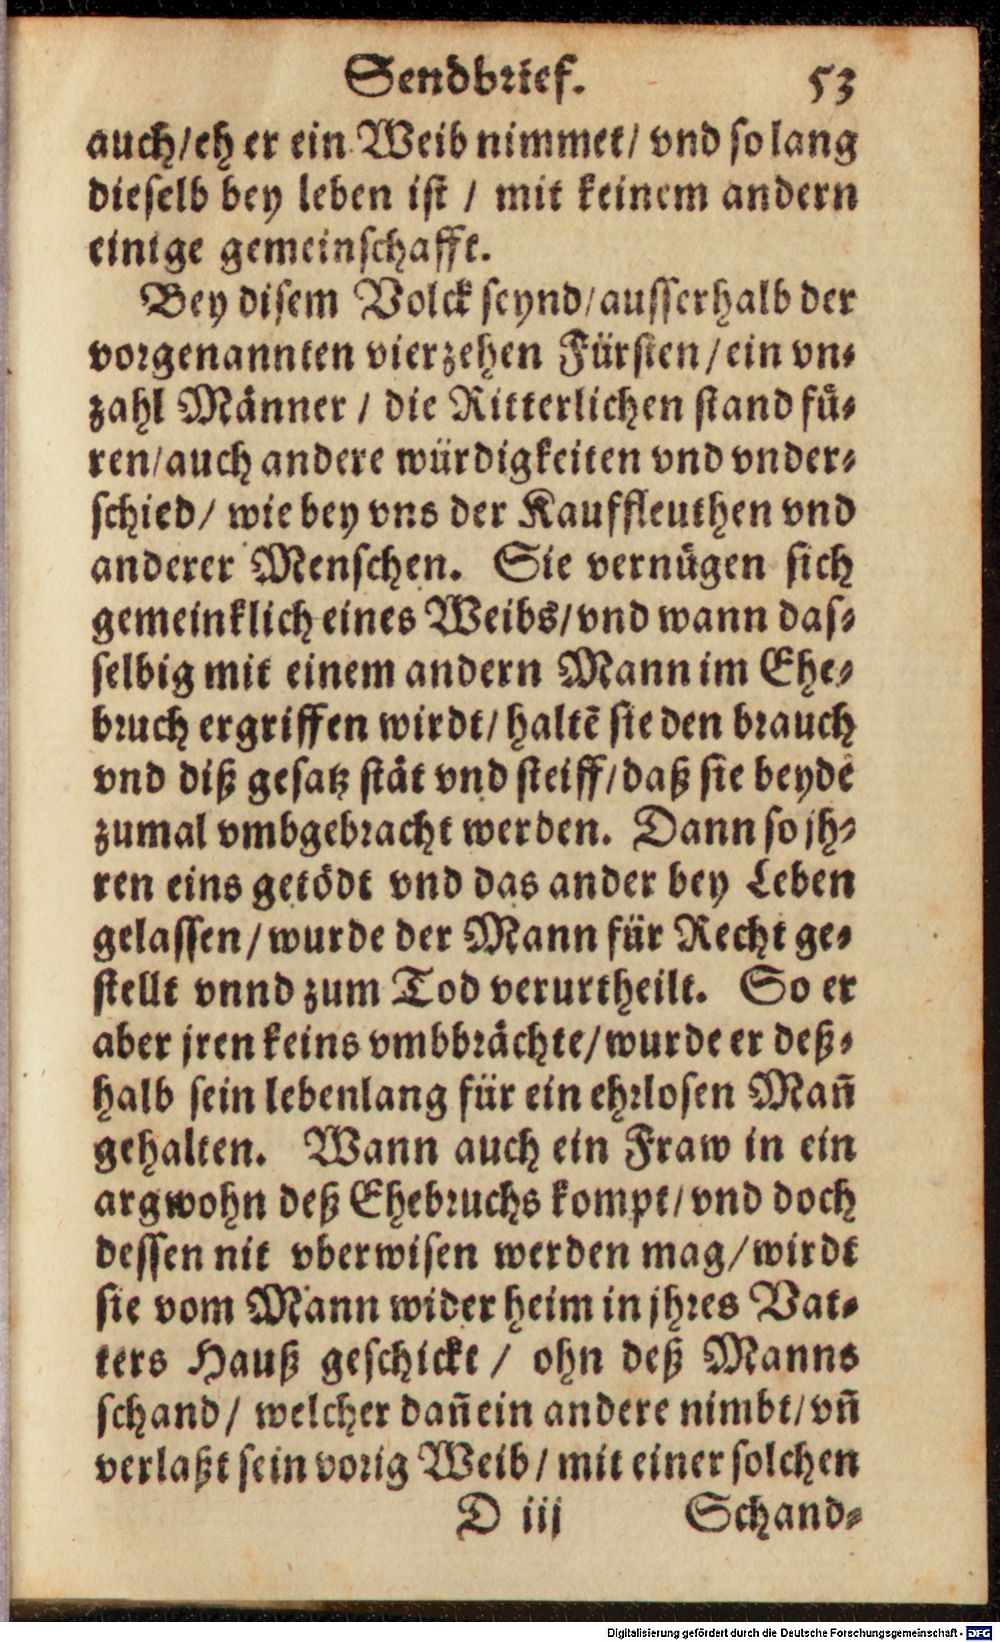 Sendbrief. 53
auch/eh er ein Weib nimmet/ vnd so lang
dieselb bey leben ist / mit keinem andern
einige gemeinschafft.
Bey disem Volck seynd/ausserhalb der
vorgenannten vierzehen Fürsten/ein vn-
zahl Männer / die Ritterlichen stand fü-
ren/auch andere würdigkeiten vnd vnder-
schied/ wie bey vns der Kauffleuthen vnd
anderer Menschen. Sie vernügen sich
gemeinklich eines Weibs/vnd wann das-
selbig mit einem andern Mann im Ehe-
bruch ergriffen wirdt/ haltē sie den brauch
vnd diß gesatz stät vnd steiff/daß sie beydē
zumal vmbgebracht werden. Dann so jh-
ren eins getödt vnd das ander bey Leben
gelassen/wurde der Mann für Recht ge-
stellt vnnd zum Tod verurtheilt. So er
aber jren keins vmbbrächte/wurde er deß-
halb sein lebenlang für ein ehrlosen Man̄
gehalten. Wann auch ein Fraw in ein
argwohn deß Ehebruchs kompt/vnd doch
dessen nit vberwisen werden mag/wirdt
sie vom Mann wider heim in jhres Vat-
ters Hauß geschickt / ohn deß Manns
schand/ welcher dan̄ ein andere nimbt/vn̄
verlaßt sein vorig Weib/ mit einer solchen
D iij Schand-
Digitalisierung gefördert durch die Deutsche Forschungsgemeinschaft - DFG